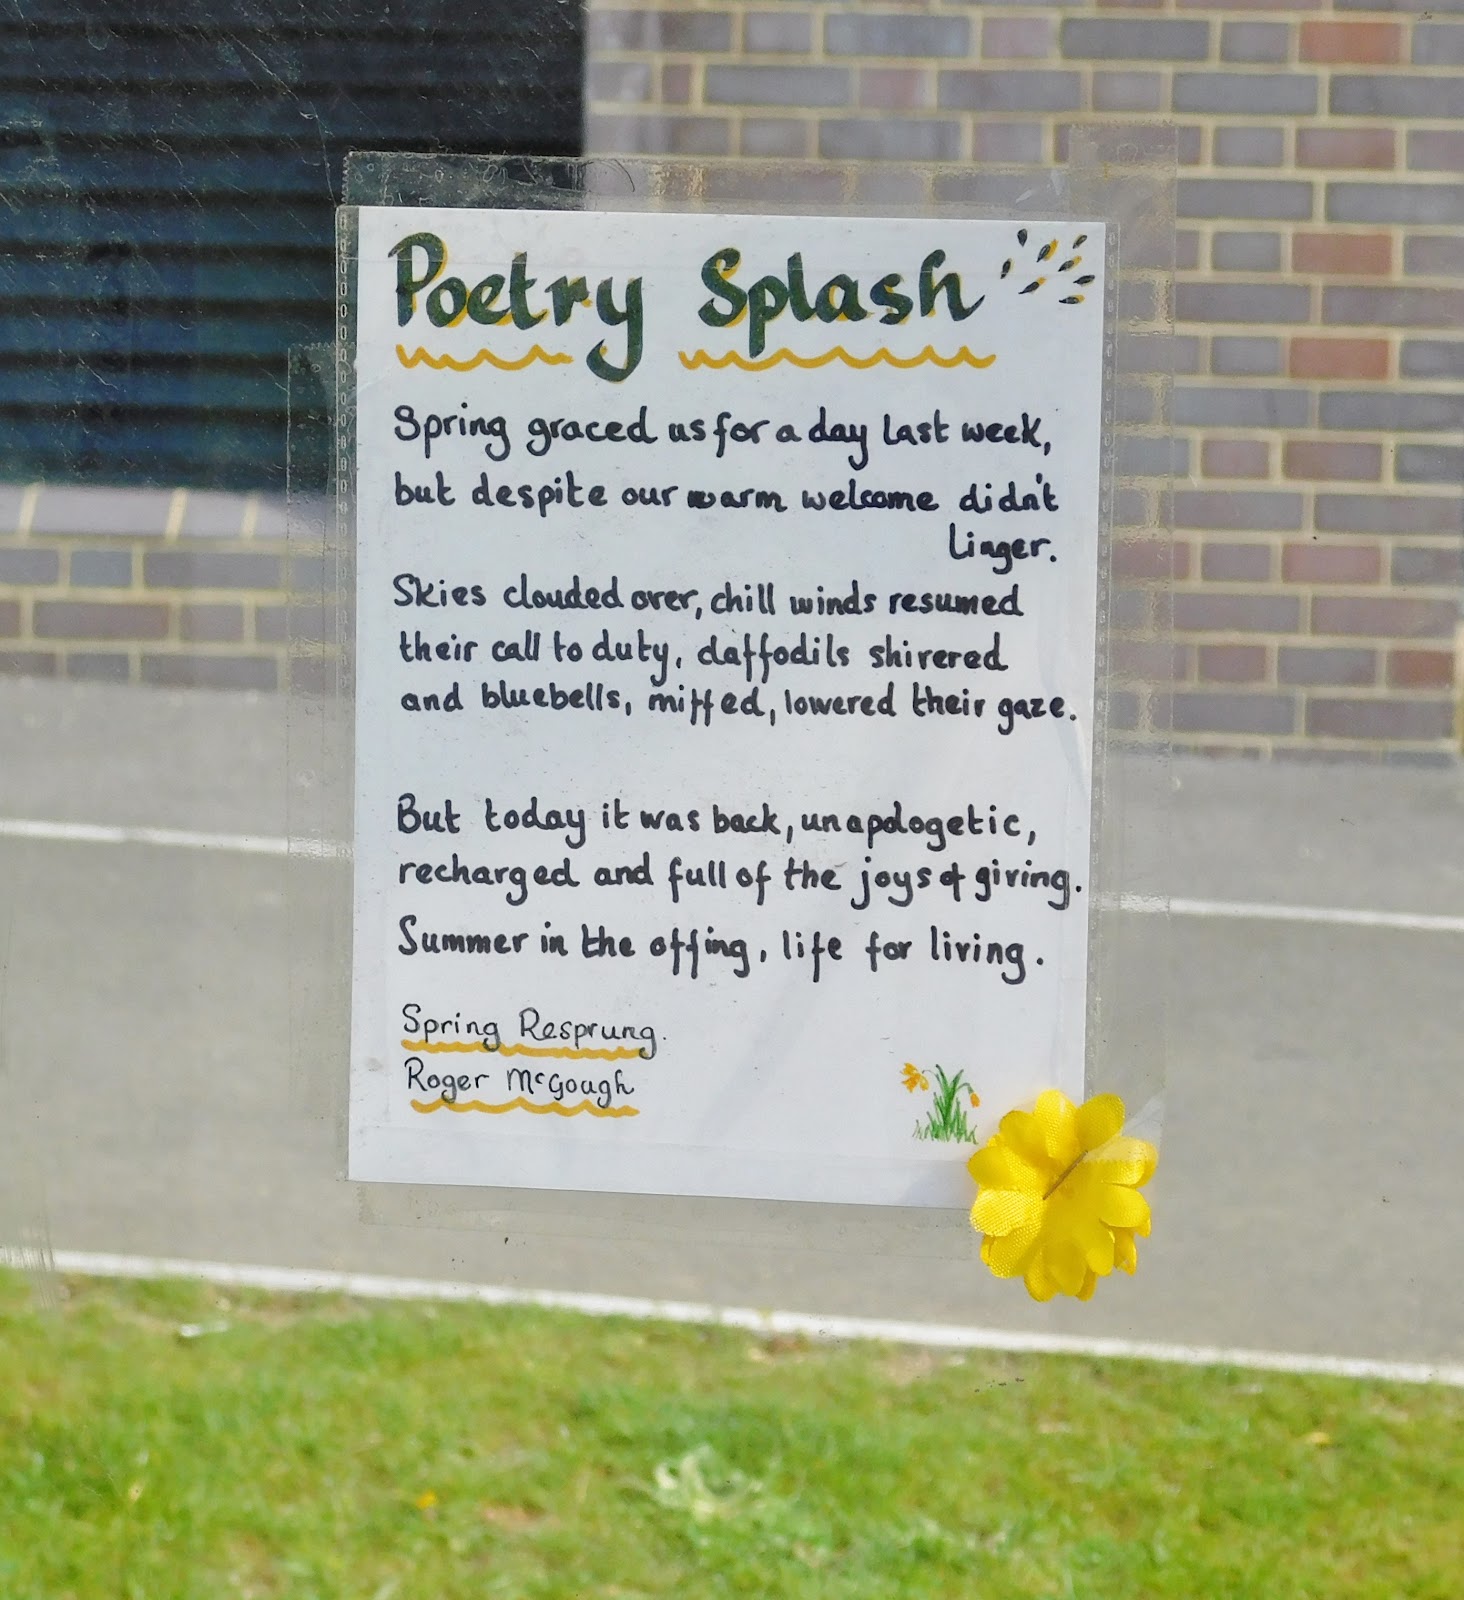 Poetry Splash
Spring graced us for a day last week,
but despite our warm welcome didn't
linger.
Skies clouded over, chill winds resumed
their call to duty, daffodils shivered
and bluebells, miffed, lowered their gaze.
But today it was back, unapologetic,
recharged and full of the joys of giving.
Summer in the offing, life for living.
Spring Resprung.
Roger McGough